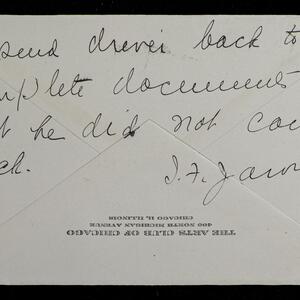 send driver back to
mplete documents
t he did not co
ck.
J. F. Jarv
THE ARTS CLUB OF CHICAGO
400 NORTH MICHIGAN AVENUE
CHICAGO 11, ILLINOIS